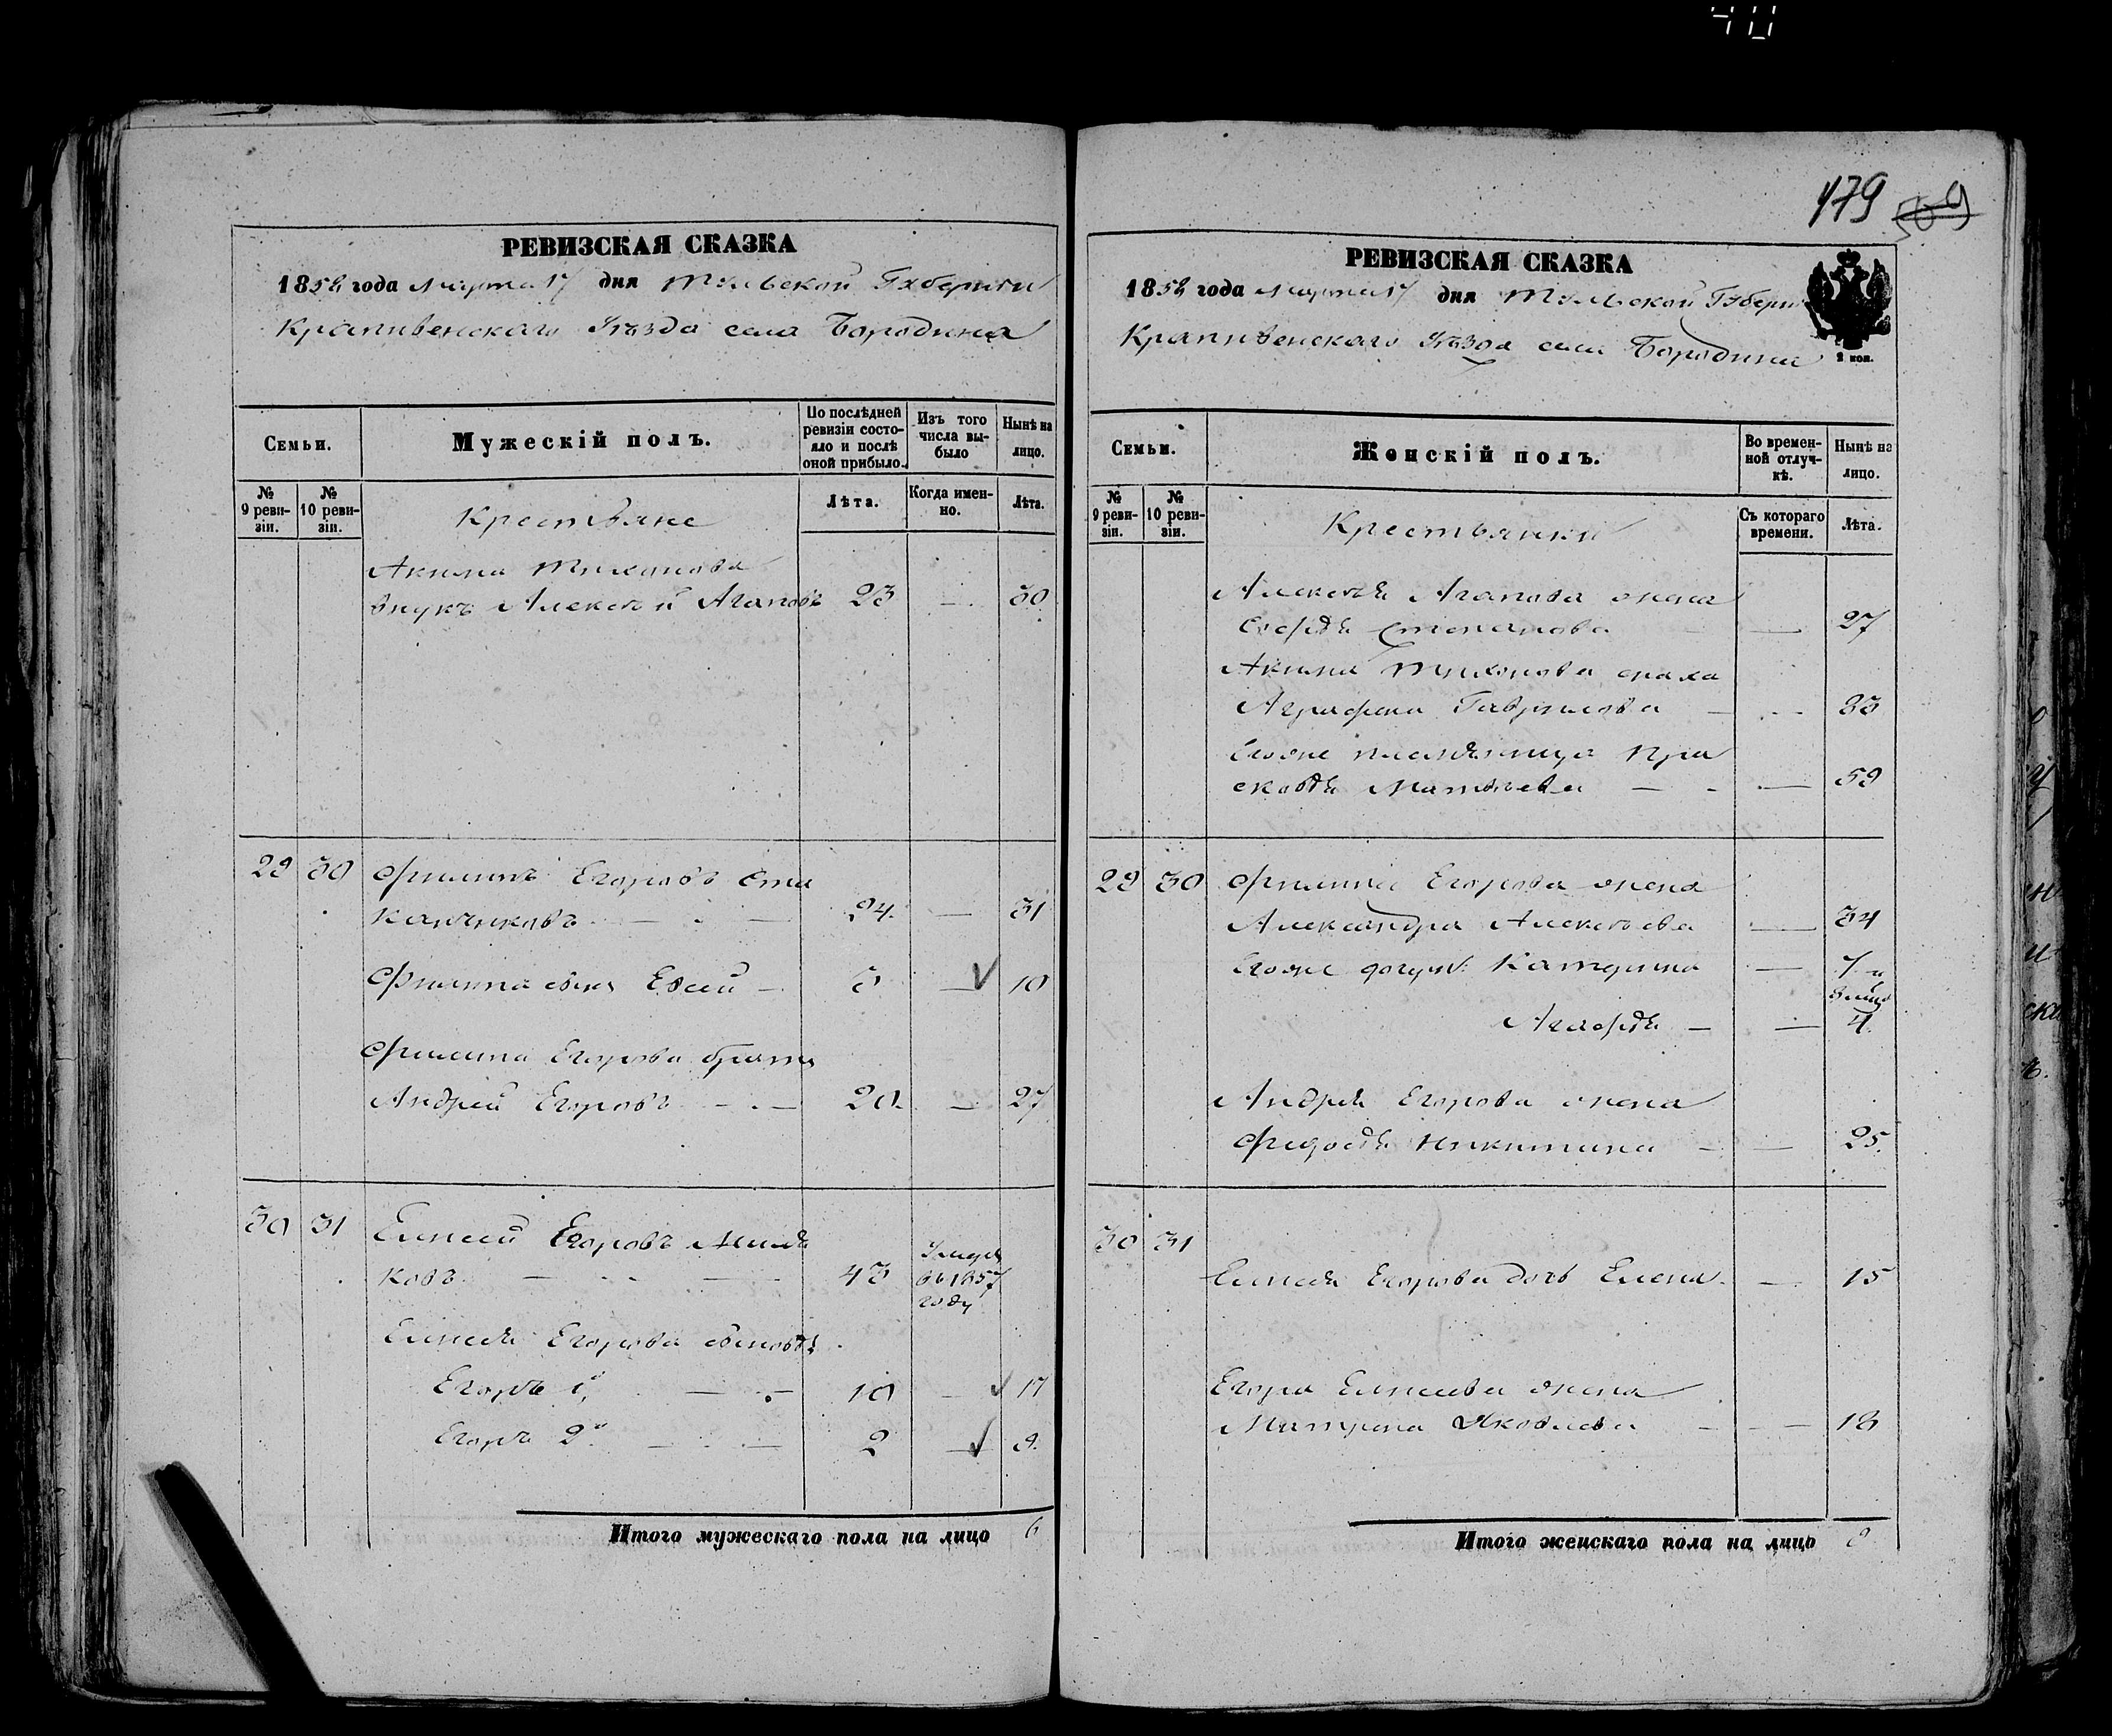 40
РЕВИЗСКАЯ СКАЗКА
1858 года Марта 17 дня Тульской Губернии
Крапивенскаго Уѣзда села Бородина
Семьи.
Мужескій полъ.
По послѣдней ревизіи состояло и послѣ оной прибыло.
Изъ того числа выбыло
Нынѣ на лицо.
№ 9 ревизіи.
№ 10 ревизіи.
Крестьяне
Лѣта.
Когда именно.
Лѣта.
Акима Тихонова
внукъ Алексѣй Агаповъ 23 — 30
29 30 Филипъ Егоровъ Ста
канчиковъ — 24 — 31
Филипа сынъ Евсей — 3 — 10
Филипа Егорова братъ
Андрей Егоровъ — 20 — 27
30 31 Елисей Егоровъ
ковъ — 43 Умеръ
въ 1857
году
Елисея Егорова сыновья
Егоръ 1й — 10 — 17
Егоръ 2й — 2 — 9
Итого мужескаго пола на лицо 6
179 509
РЕВИЗСКАЯ СКАЗКА
1858 года Марта 17 дня Тульской Губерн
Крапивенскаго Уѣзда села Бородина
2 коп.
Семьи.
Женскій полъ.
Во временной отлучкѣ.
Нынѣ на лицо.
№ 9 ревизіи.
№ 10 ревизіи.
Крестьянки
Съ котораго времени.
Лѣта.
Алексѣя Агапова жена
Софья Степанова — 27
Акима Тихонова сноха
Аграфена Гаврилова — 33
Егоже племянница Пра
сковья Матвѣева — 59
29 30 Филипа Егорова жена
Александра Алексѣева — 34
Егоже дочери: Катерина — 7 и
Агафья — 4
Андрея Егорова жена
Федосья Никитина — 25
30 31
Елисея Егорова дочь Елена — 15
Егора Елисеева жена
Матрена Яковлева — 18
Итого женскаго пола на лицо 8